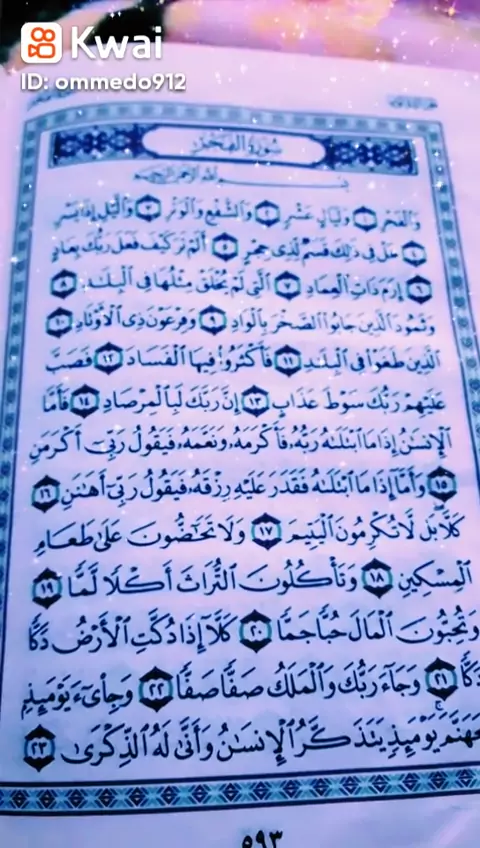 Kwai
ID: ommedo912
سُورَةُ الفَجْرِ
بِسْمِ اللَّهِ الرَّحْمَٰنِ الرَّحِيمِ
وَالْفَجْرِ ١ وَلَيَالٍ عَشْرٍ ٢ وَالشَّفْعِ وَالْوَتْرِ ٣ وَاللَّيْلِ إِذَا يَسْرِ
٤ هَلْ فِي ذَٰلِكَ قَسَمٌ لِذِي حِجْرٍ ٥ أَلَمْ تَرَ كَيْفَ فَعَلَ رَبُّكَ بِعَادٍ
٦ إِرَمَ ذَاتِ الْعِمَادِ ٧ الَّتِي لَمْ يُخْلَقْ مِثْلُهَا فِي الْبِلَادِ ٨
وَثَمُودَ الَّذِينَ جَابُوا الصَّخْرَ بِالْوَادِ ٩ وَفِرْعَوْنَ ذِي الْأَوْتَادِ ١٠
الَّذِينَ طَغَوْا فِي الْبِلَادِ ١١ فَأَكْثَرُوا فِيهَا الْفَسَادَ ١٢ فَصَبَّ
عَلَيْهِمْ رَبُّكَ سَوْطَ عَذَابٍ ١٣ إِنَّ رَبَّكَ لَبِالْمِرْصَادِ ١٤ فَأَمَّا
الْإِنسَٰنُ إِذَا مَا ابْتَلَىٰهُ رَبُّهُ فَأَكْرَمَهُ وَنَعَّمَهُ فَيَقُولُ رَبِّي أَكْرَمَنِ
١٥ وَأَمَّا إِذَا مَا ابْتَلَىٰهُ فَقَدَرَ عَلَيْهِ رِزْقَهُ فَيَقُولُ رَبِّي أَهَٰنَنِ ١٦
كَلَّا بَل لَّا تُكْرِمُونَ الْيَتِيمَ ١٧ وَلَا تَحَٰضُّونَ عَلَىٰ طَعَامِ
الْمِسْكِينِ ١٨ وَتَأْكُلُونَ التُّرَاثَ أَكْلًا لَّمًّا ١٩
وَتُحِبُّونَ الْمَالَ حُبًّا جَمًّا ٢٠ كَلَّا إِذَا دُكَّتِ الْأَرْضُ دَكًّا
دَكًّا ٢١ وَجَاءَ رَبُّكَ وَالْمَلَكُ صَفًّا صَفًّا ٢٢ وَجِايءَ يَوْمَئِذٍ
بِجَهَنَّمَ يَوْمَئِذٍ يَتَذَكَّرُ الْإِنسَٰنُ وَأَنَّىٰ لَهُ الذِّكْرَىٰ ٢٣
٥٩٣